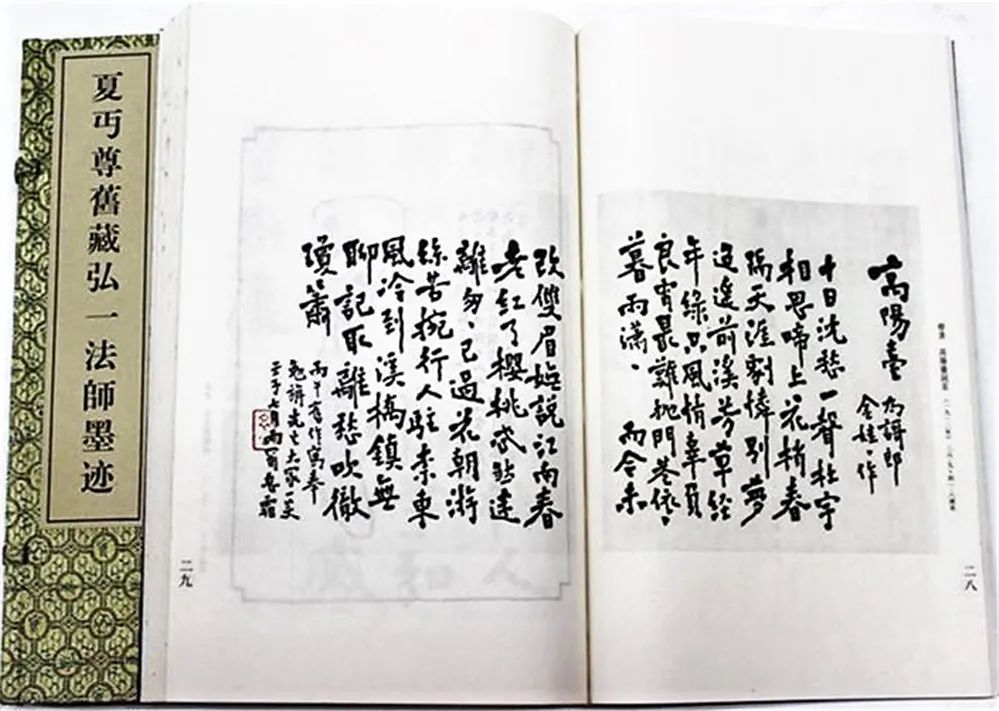 夏丏尊舊藏弘一法師墨迹
高陽臺
為諝郎
金娃、作
十日沈愁一聲杜宇
相思啼上花梢春
隔天涯劇憐別夢
迢遥前溪芳草經
年綠只風情辜負
良宵最難抛門巷依、
暮雨瀟、而今未
二八
改雙眉嫵說江南春
老紅了櫻桃忒煞迷
離匆、已過花朝游
絲苦挽行人駐奈東
風冷到溪橋鎮無
聊記取離愁吹徹
瓊簫
丙午舊作寫奉
勉旃先生大家一笑
壬子六月雨窗息霜
二九